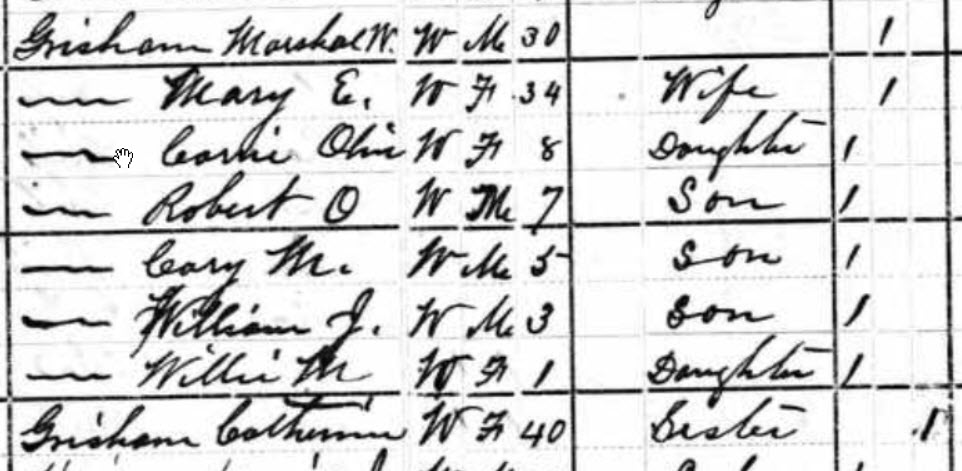 Grisham Marshal W. W M 30 1
— Mary E. W F 34 Wife 1
— Carrie Olivi W F 8 Daughter 1
— Robert O W M 7 Son 1
— Cary M. W M 5 Son 1
— William J. W M 3 Son 1
— Willie M W F 1 Daughter 1
Grisham Catherine W F 40 Sister 1